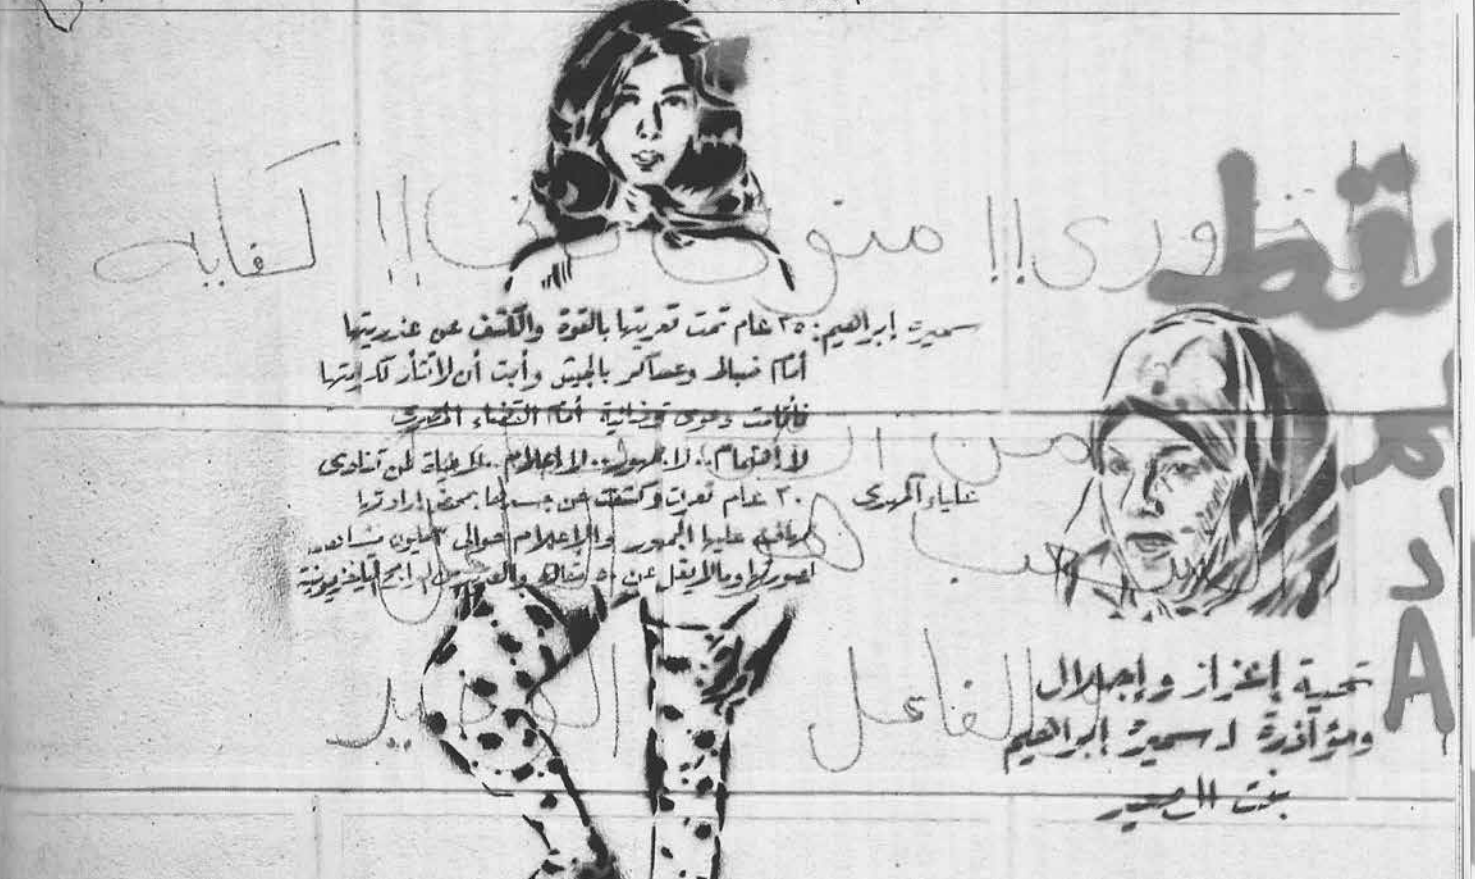 ثورى!! كفايه
سميرة إبراهيم: ٢٥ عام تمت تعريتها بالقوة والكشف عن عذريتها
أمام ضباط وعساكر بالجيش وأبت أن لا تثأر لكرامتها
فأقامت دعوى قضائية أمام القضاء المصرى
لا إهتمام .. لا جمهور .. لا إعلام .. لا حياة لمن تنادى
علياء المهدى ٢٠ عام تعرت وكشفت عن جسدها بمحض إرادتها
تهافت عليها الجمهور والإعلام حوالى ٣ مليون مشاهد
لصورتها وما لا يقل عن ٥٠ مقالة والعديد من البرامج التليفزيونية
من
الشعب هو
الفاعل الوحيد
تحية إعزاز وإجلال
ومؤازرة لـ سميرة إبراهيم
بنت الصعيد
A